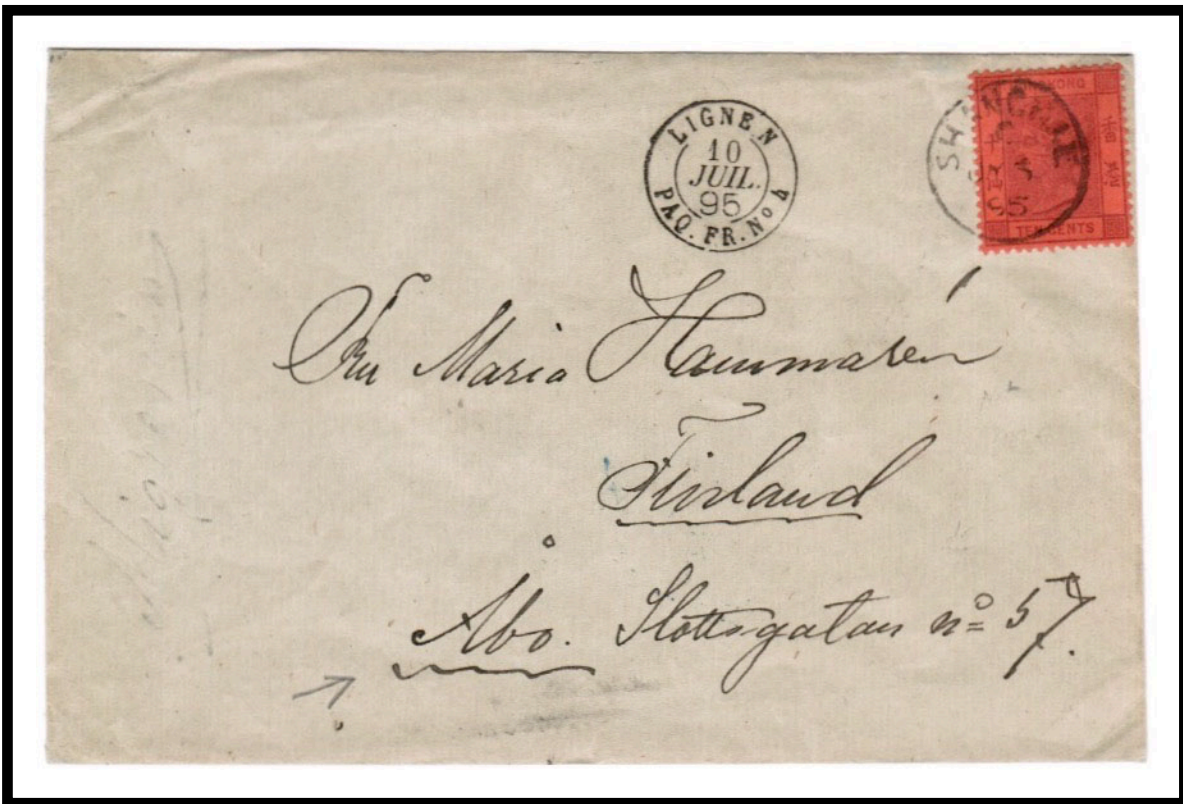 LIGNE N
10
JUIL.
95
PAQ. FR. Nº 4
SHANGHAI
95
KONG
TEN CENTS
Fru Maria Hammarén
Finland
Åbo. Slottsgatan nº 57.